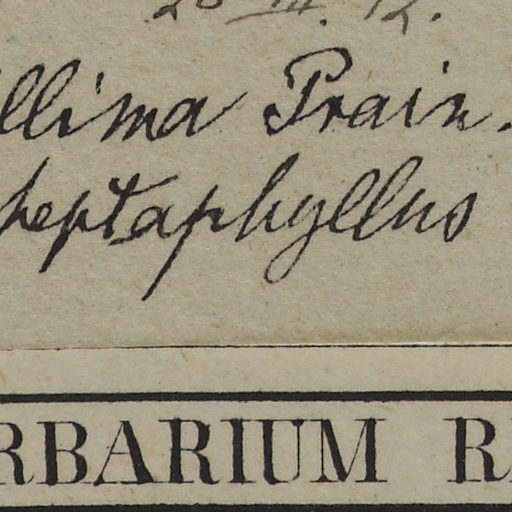 20 III. 12.
llima Prain.
heptaphyllus
RBARIUM R